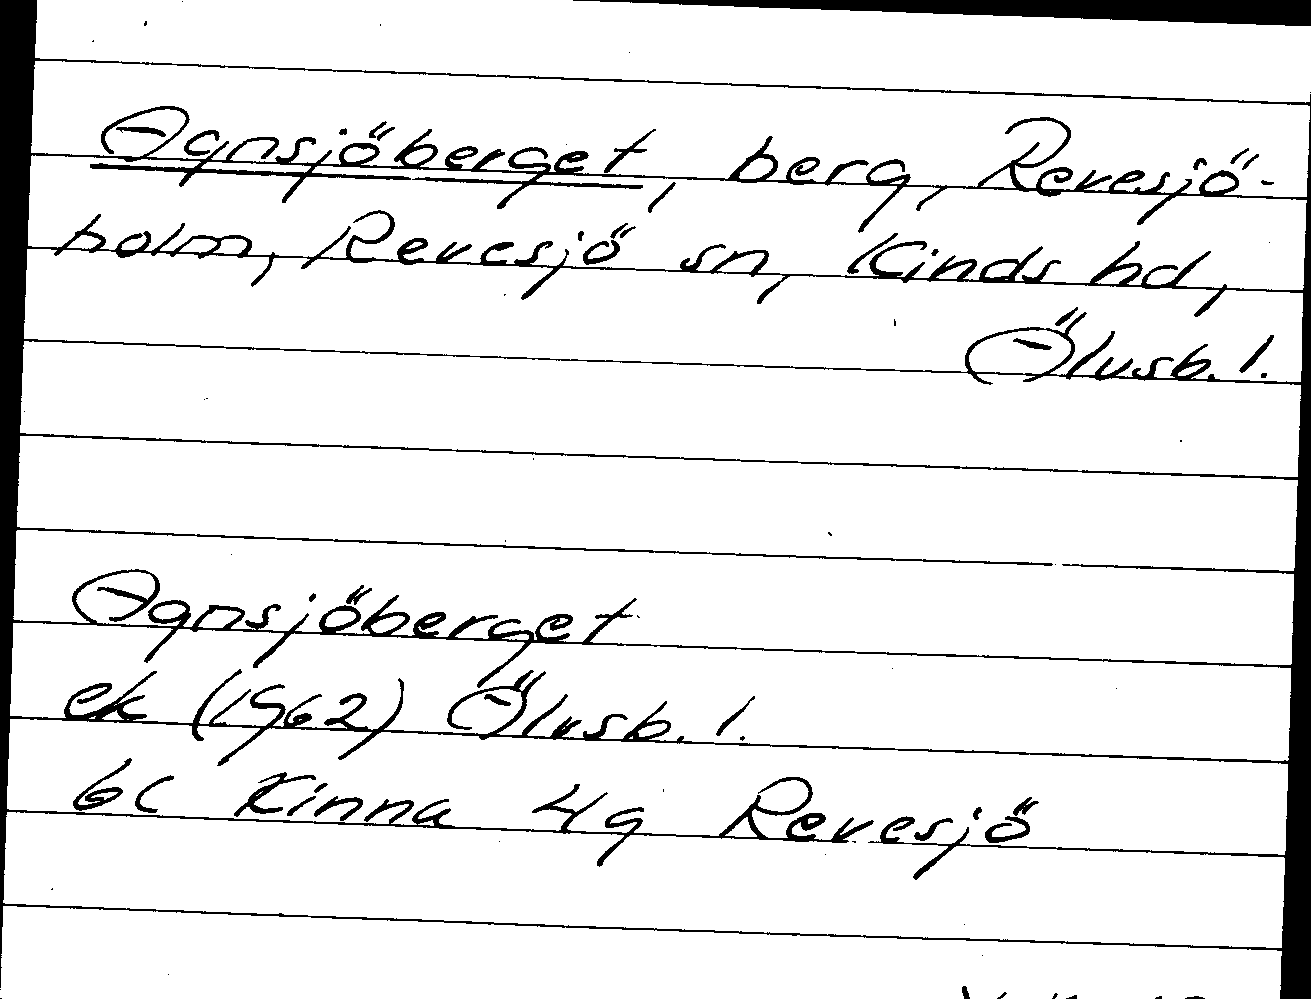 Agnsjöberget, berg, Revesjö-
holm, Revesjö sn, Kinds hd,
Älvsb. l.
Agnsjöberget
ek (1962) Älvsb. l.
6C Kinna 4g Revesjö